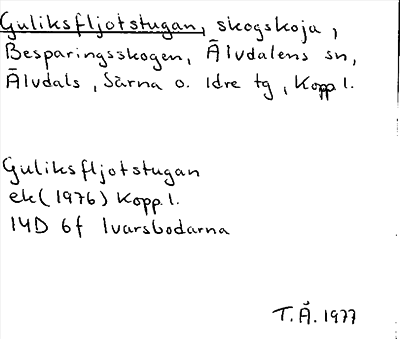 Guliksfljotstugan, skogskoja,
Besparingsskogen, Älvdalens sn,
Älvdals, Särna o. Idre tg, Kopp l.
Guliksfljotstugan
ek (1976) Kopp. l.
14D 6f Ivarsbodarna
T.Å. 1977